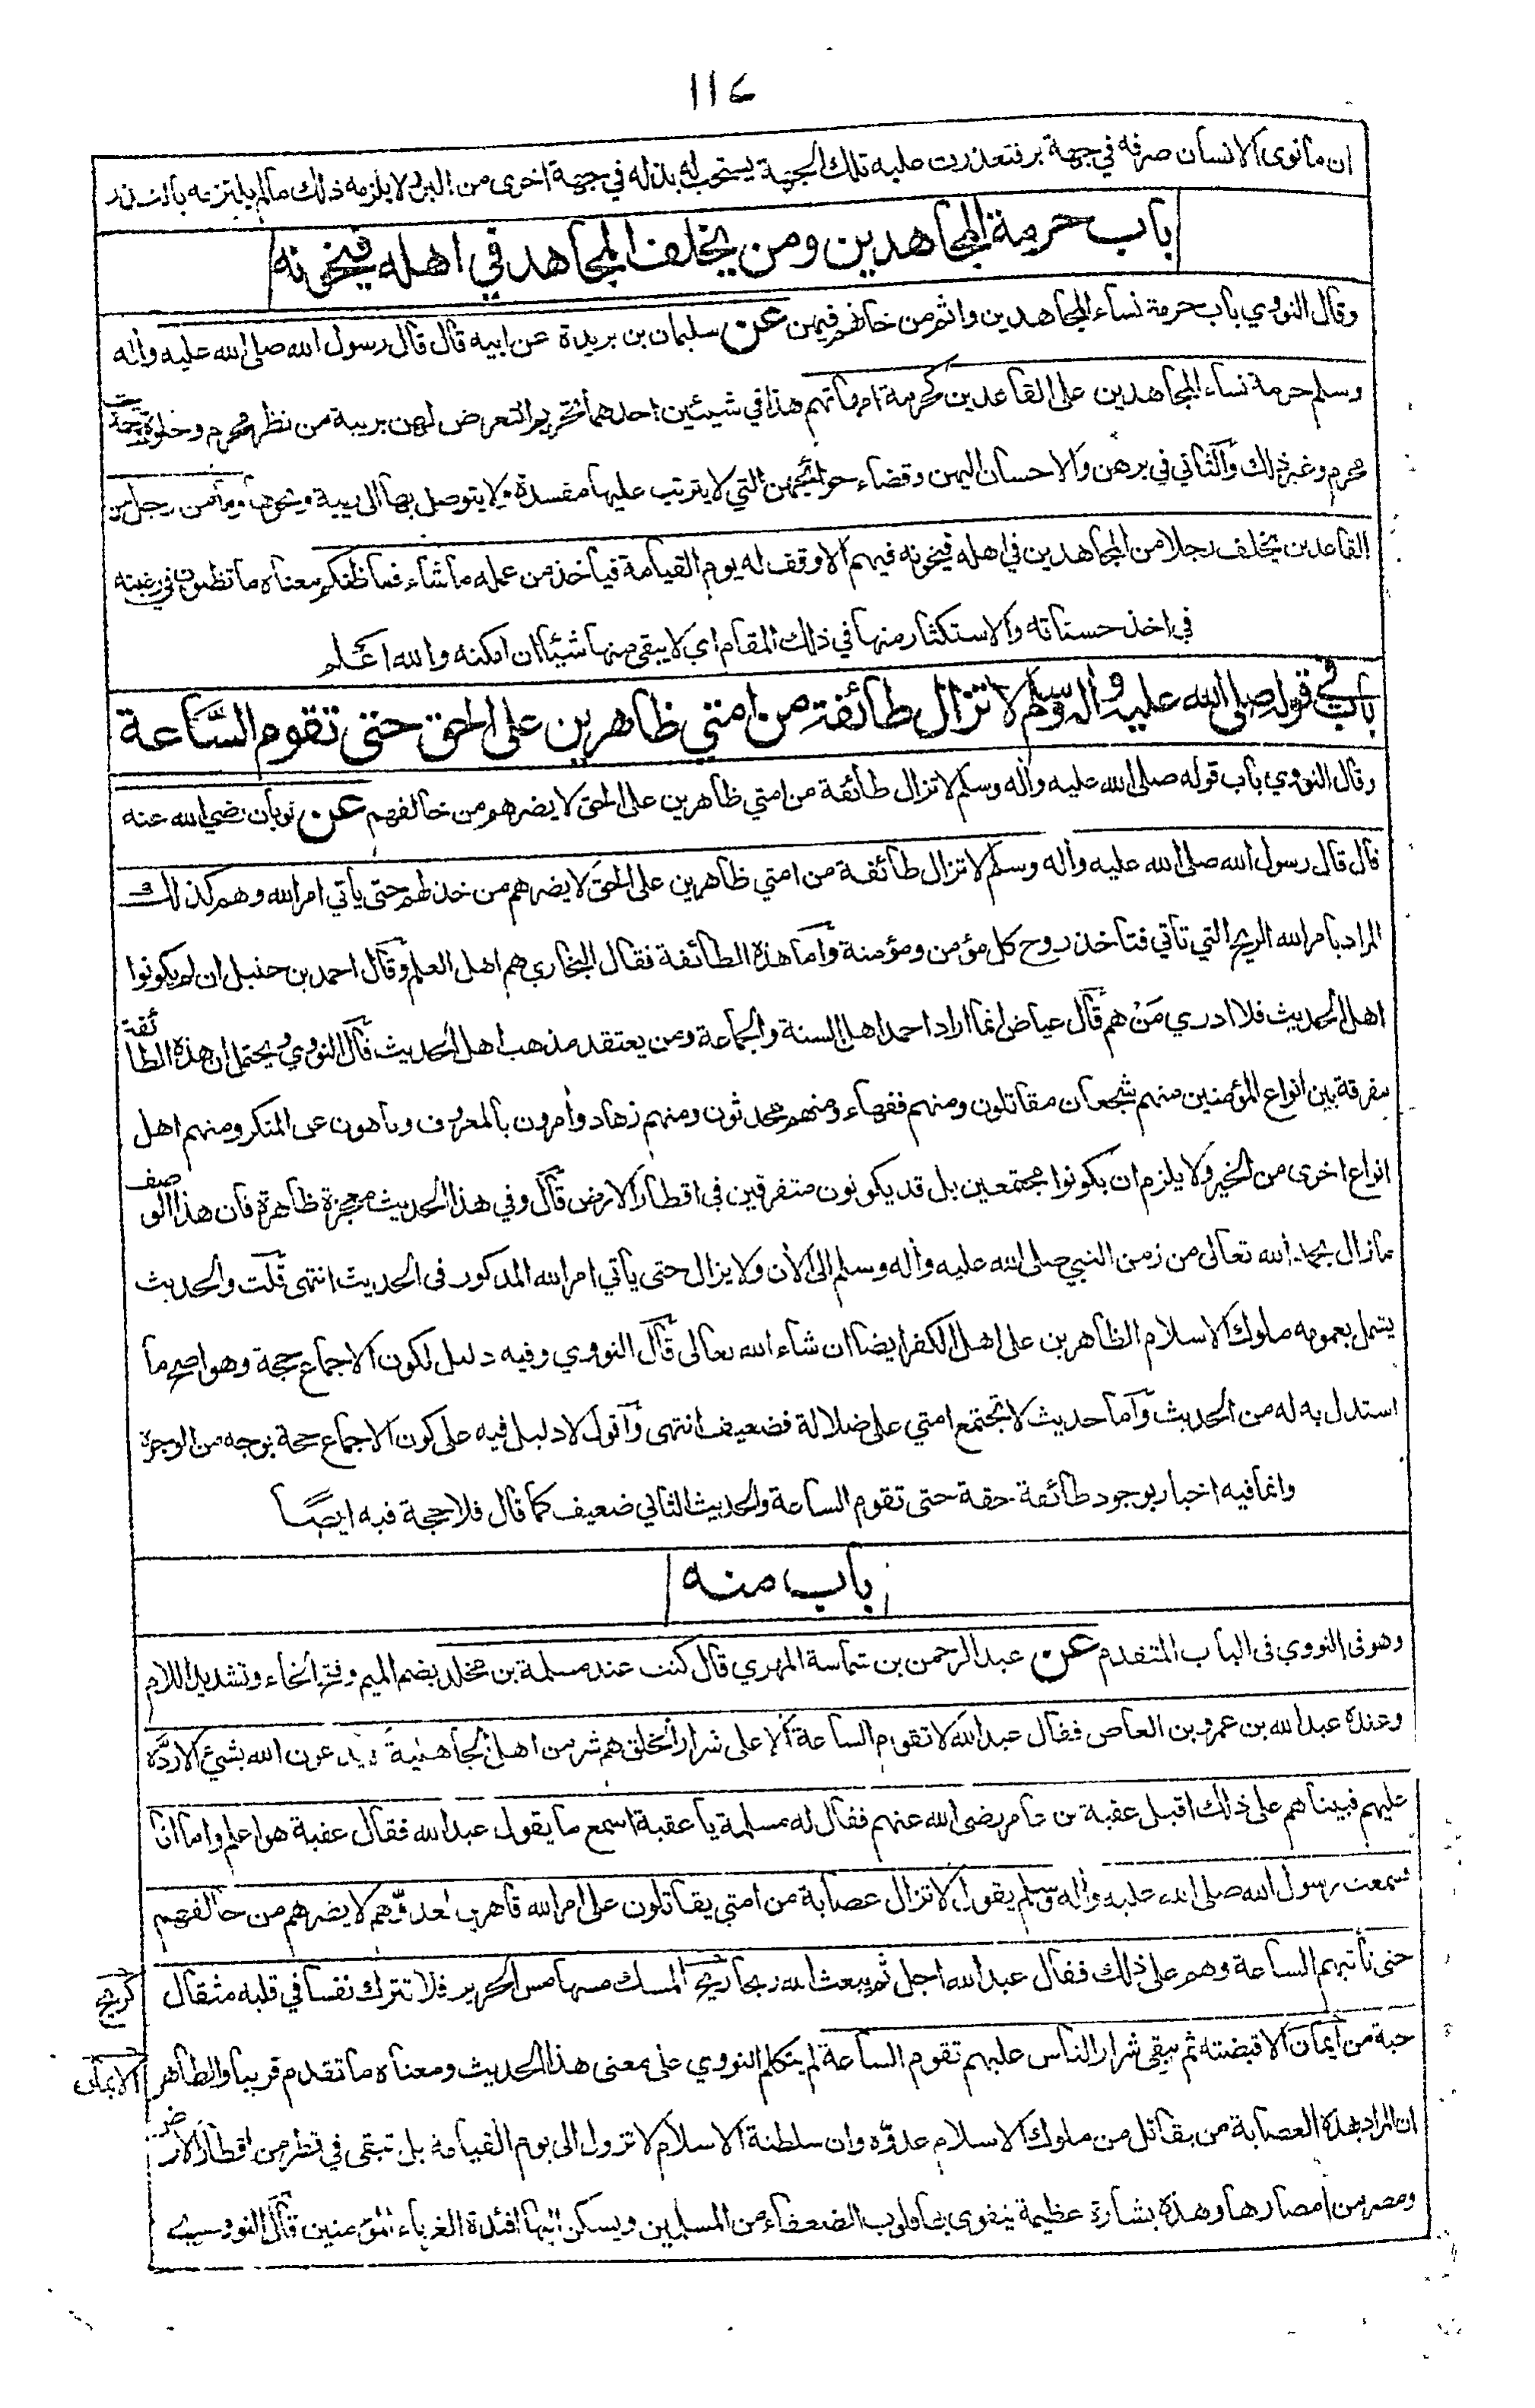 ١١٤
ان ما نوى الانسان صرفه في جهة بر فتعذرت عليه تلك الجهة يستحب له بذله في جهة اخرى من البر ولا يلزمه ذلك ما لم يلتزمه بالنذر
باب حرمة المجاهدين ومن يخلف المجاهد في اهله فيخونه
وقال النووي باب حرمة نساء المجاهدين واثم من خانهم فيهن عن سليمان بن بريدة عن ابيه قال قال رسول الله صلى الله عليه وآله
وسلم حرمة نساء المجاهدين على القاعدين كحرمة امهاتهم هذا في شيئين احدهما تحريم التعرض لهن بريبة من نظر محرم وخلوة وحديث
محرم وغير ذلك والثاني في برهن والاحسان اليهن وقضاء حوائجهن التي لا يترتب عليها مفسدة ولا يتوصل بها الى ريبة ونحوها وما من رجل من
القاعدين يخلف رجلا من المجاهدين في اهله فيخونه فيهم الا وقف له يوم القيامة فيأخذ من عمله ما شاء فما ظنكم معناه ما تظنون في رغبته
في اخذ حسناته والاستكثار منها في ذلك المقام اي لا يبقي منها شيئا ان امكنه والله اعلم
باب في قوله صلى الله عليه وآله وسلم لا تزال طائفة من امتي ظاهرين على الحق حتى تقوم السَّاعة
وقال النووي باب قوله صلى الله عليه وآله وسلم لا تزال طائفة من امتي ظاهرين على الحق لا يضرهم من خالفهم عن ثوبان رضي الله عنه
قال قال رسول الله صلى الله عليه وآله وسلم لا تزال طائفة من امتي ظاهرين على الحق لا يضرهم من خذلهم حتى يأتي امر الله وهم كذلك
المراد بامر الله الريح التي تأتي فتأخذ روح كل مؤمن ومؤمنة وأما هذه الطائفة فقال البخاري هم اهل العلم وقال احمد بن حنبل ان لم يكونوا
اهل الحديث فلا ادري مَنْ هم قال عياض انما اراد احمد اهل السنة والجماعة ومن يعتقد مذهب اهل الحديث قال النووي ويحتمل ان هذه الطائفة
مفرقة بين انواع المؤمنين منهم شجعان مقاتلون ومنهم فقهاء ومنهم محدثون ومنهم زهاد وآمرون بالمعروف وناهون عن المنكر ومنهم اهل
انواع اخرى من الخير ولا يلزم ان يكونوا مجتمعين بل قد يكونون متفرقين في اقطار الارض قال وفي هذا الحديث معجزة ظاهرة فان هذا الوصف
ما زال بحمد الله تعالى من زمن النبي صلى الله عليه وآله وسلم الى الآن ولا يزال حتى يأتي امر الله المذكور في الحديث انتهى قلت والحديث
يشمل بعمومه ملوك الاسلام الظاهرين على اهل الكفر ايضا ان شاء الله تعالى قال النووي وفيه دليل لكون الاجماع حجة وهو اصح ما
استدل به له من الحديث وأما حديث لا تجتمع امتي على ضلالة فضعيف انتهى وأقول لا دليل فيه على كون الاجماع حجة بوجه من الوجوه
وانما فيه اخبار بوجود طائفة حقة حتى تقوم الساعة والحديث الثاني ضعيف كما قال فلا حجة فيه ايضًا
باب منه
وهو في النووي في الباب المتقدم عن عبد الرحمن بن شماسة المهري قال كنت عند مسلمة بن مخلد بضم الميم وفتح الخاء وتشديد اللام
وعنده عبد الله بن عمرو بن العاص فقال عبد الله لا تقوم الساعة الا على شرار الخلق هم شر من اهل الجاهلية لا يدعون الله بشئ الا ردَّه
عليهم فبينما هم على ذلك اقبل عقبة بن عامر رضي الله عنهم فقال له مسلمة يا عقبة اسمع ما يقول عبد الله فقال عقبة هو اعلم واما انا
فسمعت رسول الله صلى الله عليه وآله وسلم يقول لا تزال عصابة من امتي يقاتلون على امر الله قاهرين لعدوّهم لا يضرهم من خالفهم
حتى تأتيهم الساعة وهم على ذلك فقال عبد الله اجل ثم يبعث الله ريحا كريح المسك مسها مس الحرير فلا تترك نفسا في قلبه مثقال
حبة من ايمان الا قبضته ثم يبقى شرار الناس عليهم تقوم الساعة لم يتكلم النووي على معنى هذا الحديث ومعناه ما تقدم قريبا والظاهر الايمان
ان المراد بهذه العصابة من يقاتل من ملوك الاسلام عدوّه وان سلطنة الاسلام لا تزول الى يوم القيامة بل تبقى في قطر من اقطار الارض
ومصر من امصارها وهذه بشارة عظيمة يتقوى بها قلوب الضعفاء من المسلمين ويسكن اليها افئدة الغرباء المؤمنين قال النووي